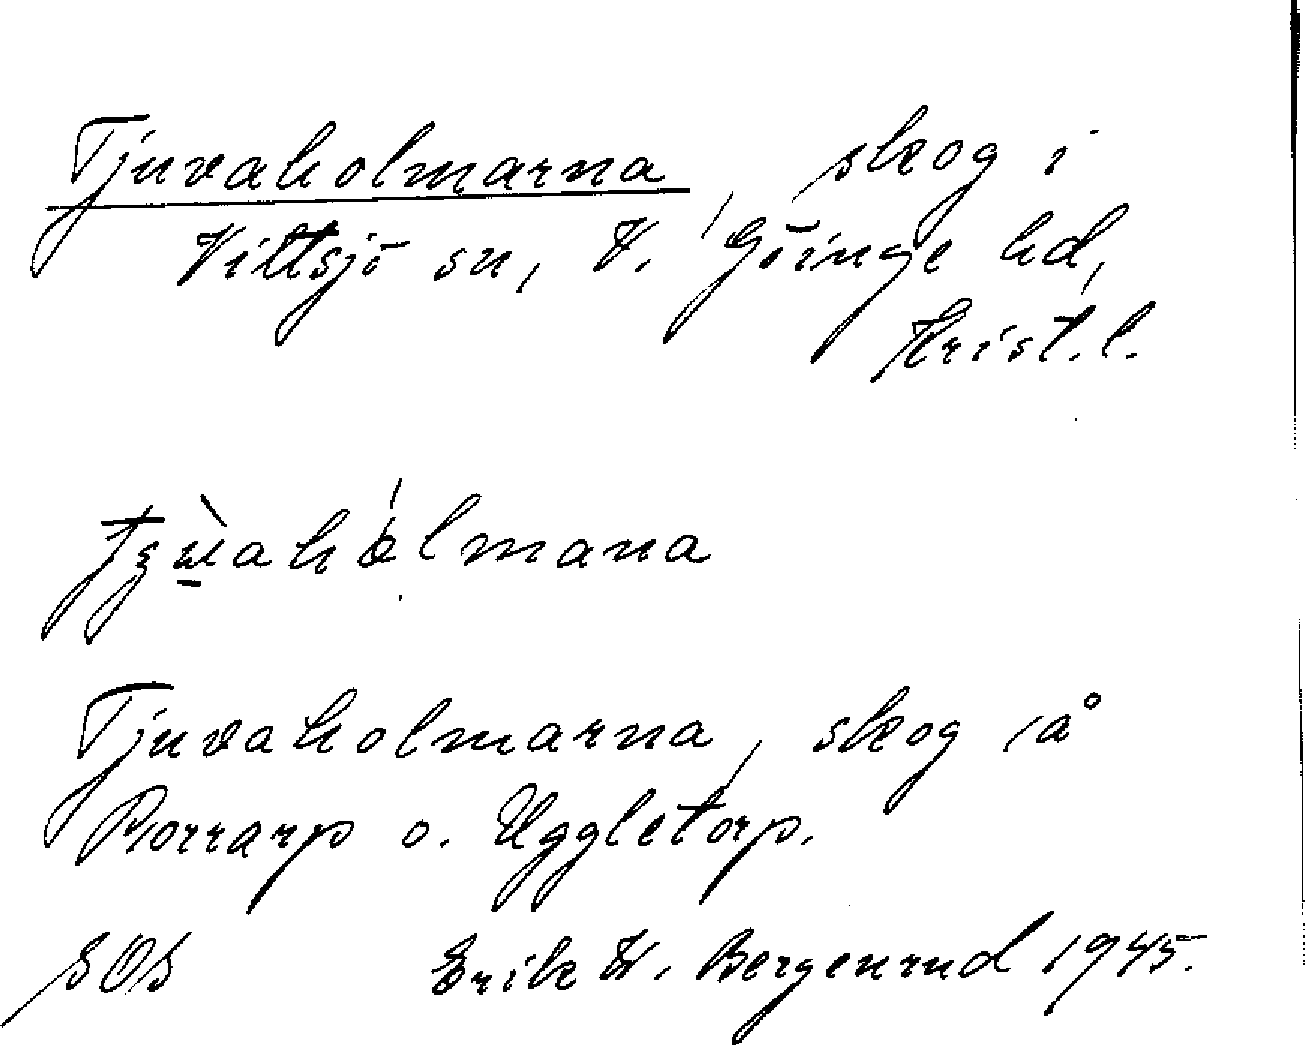 Tjuvaholmarna, skog i
Vittsjö sn, V. Göinge hd,
Krist. l.
Tjuvaholmarna, skog å
Porrarp o. Uggletorp.
SOS Erik K. Bergenrud 1945.